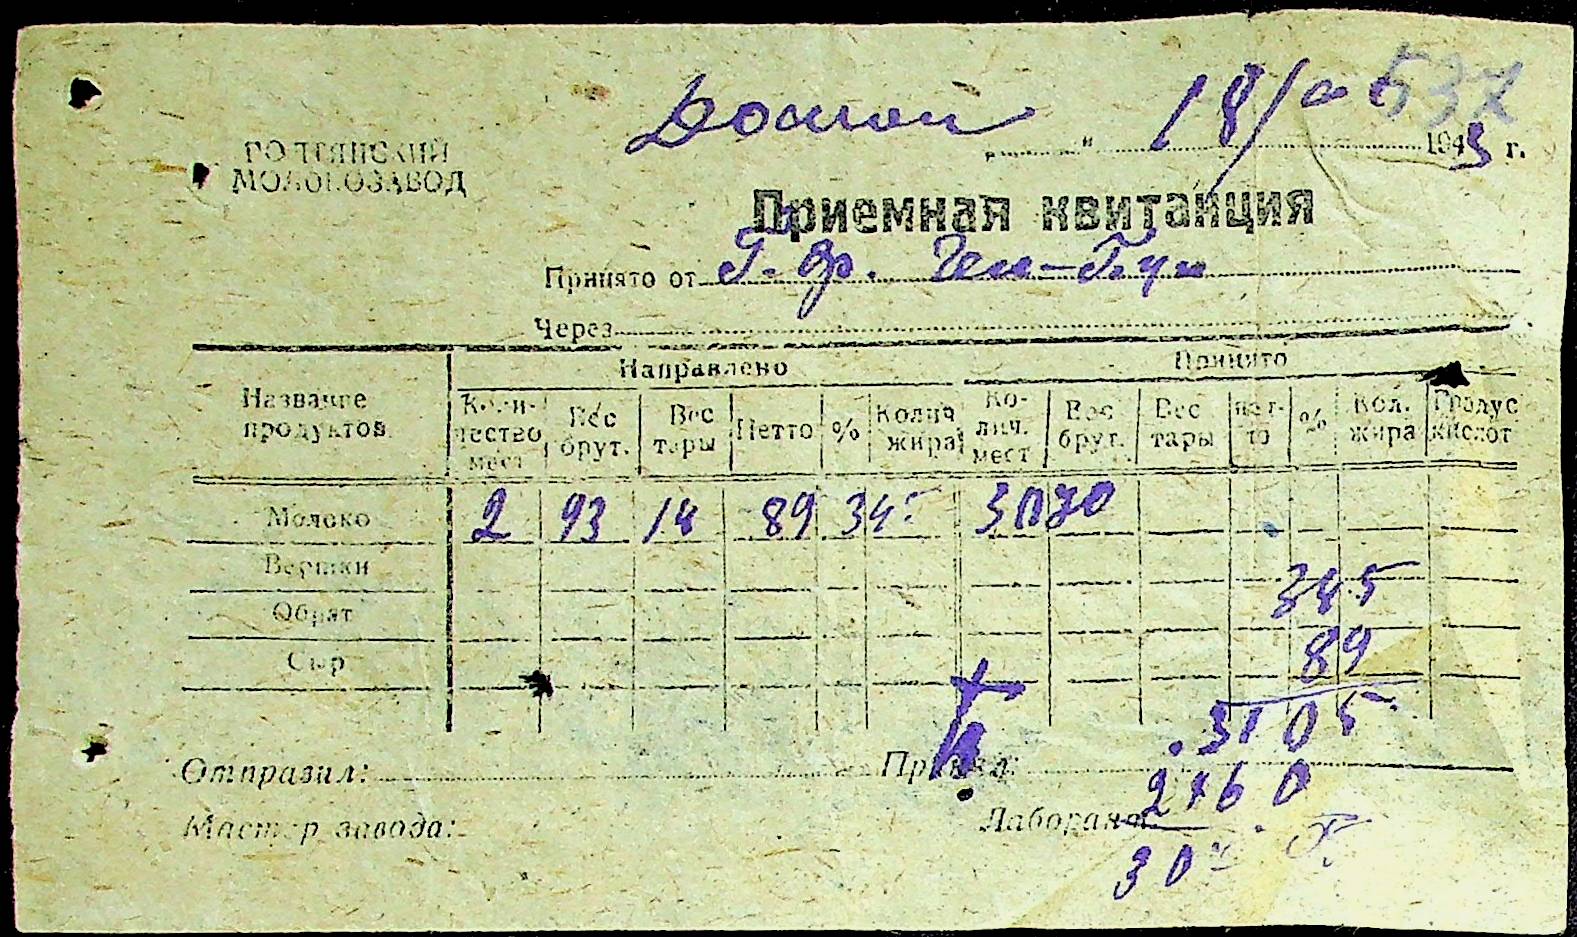 537
18/
194 г.
МОЛОКОЗАВОД
Приемная квитанция
Принято от Г. ф.
Через
Название продуктов Направлено Принято
Количество мест Вес брут. Вес тары Нетто % Колич. жира Колич. мест Вес брут. Вес тары нетто % Кол. жира Градус кислот
Молоко 2 93 14 89 34 3070
Вершки
Обрат 345
Сыр 89
3105
Отправил: Принял:
2760
Мастер завода: Лаборант
30